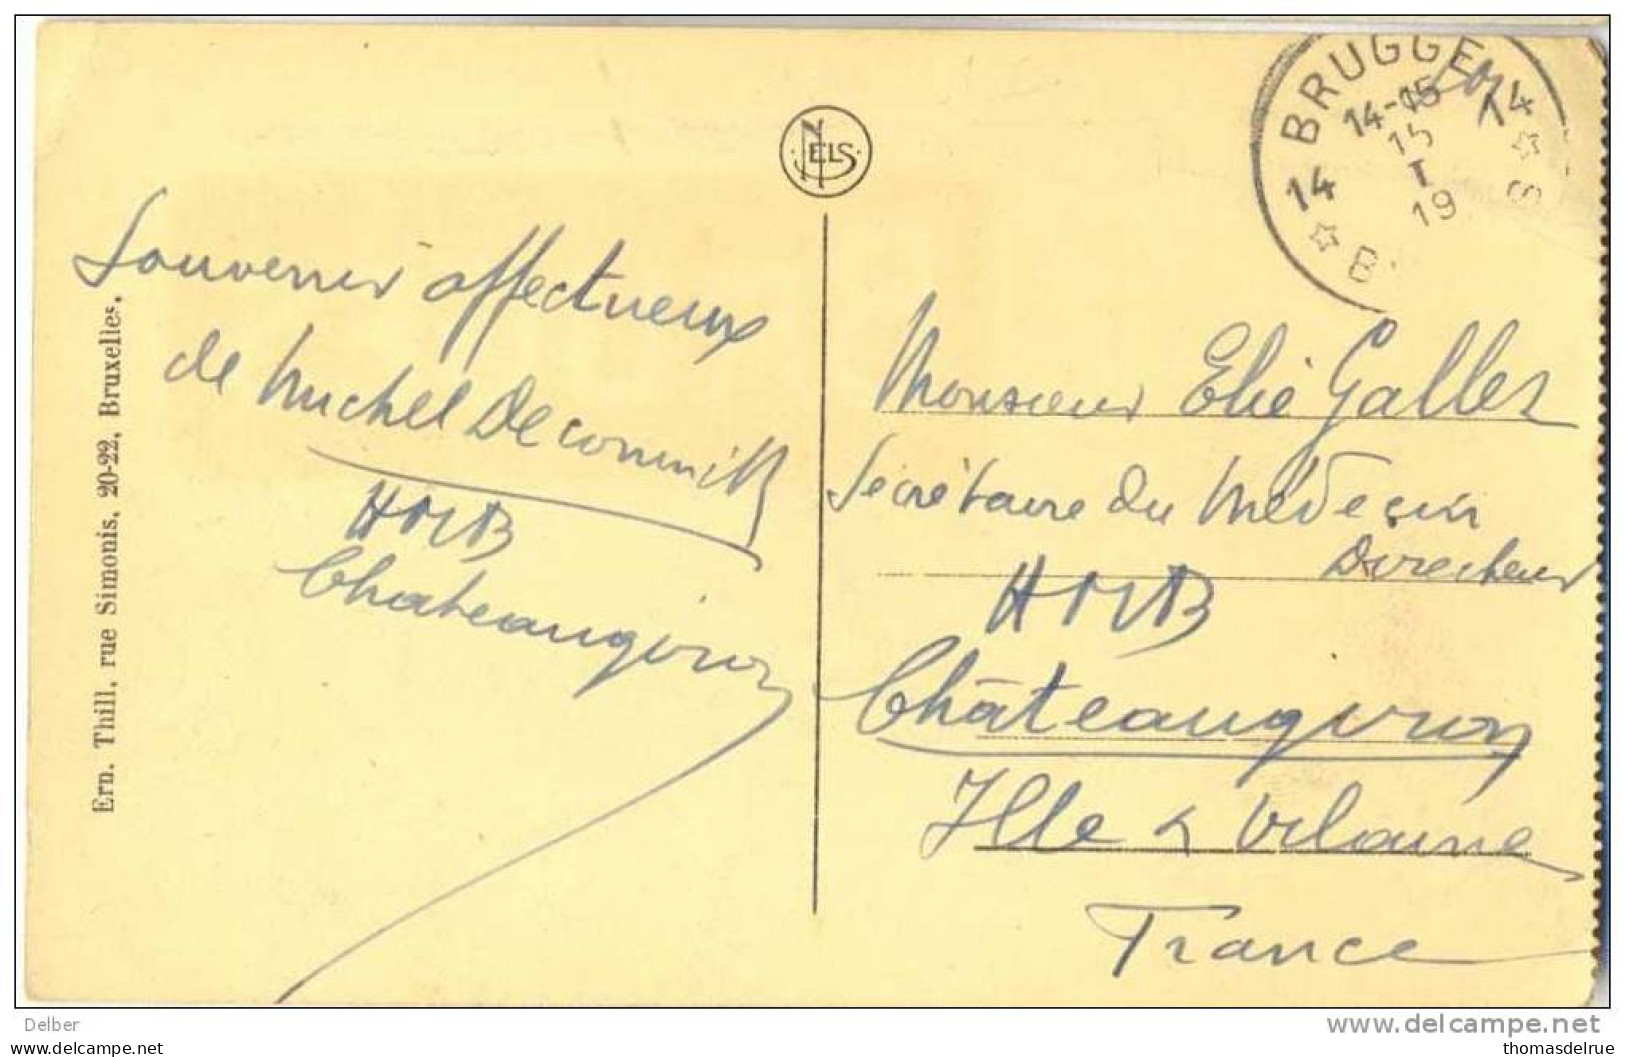 NELS
BRUGGE
14-15
14 15 14
I
19
B
Souvenir affectueux
de Michel
HMB
Chateaugiron
Monsieur Elie Galles
Secrétaire du Médecin
Directeur
HMB
Châteaugiron
Ille & Vilaine
France
Ern. Thill, rue Simonis, 20-22, Bruxelles.
Delber
www.delcampe.net
the collector
thomasdelrue